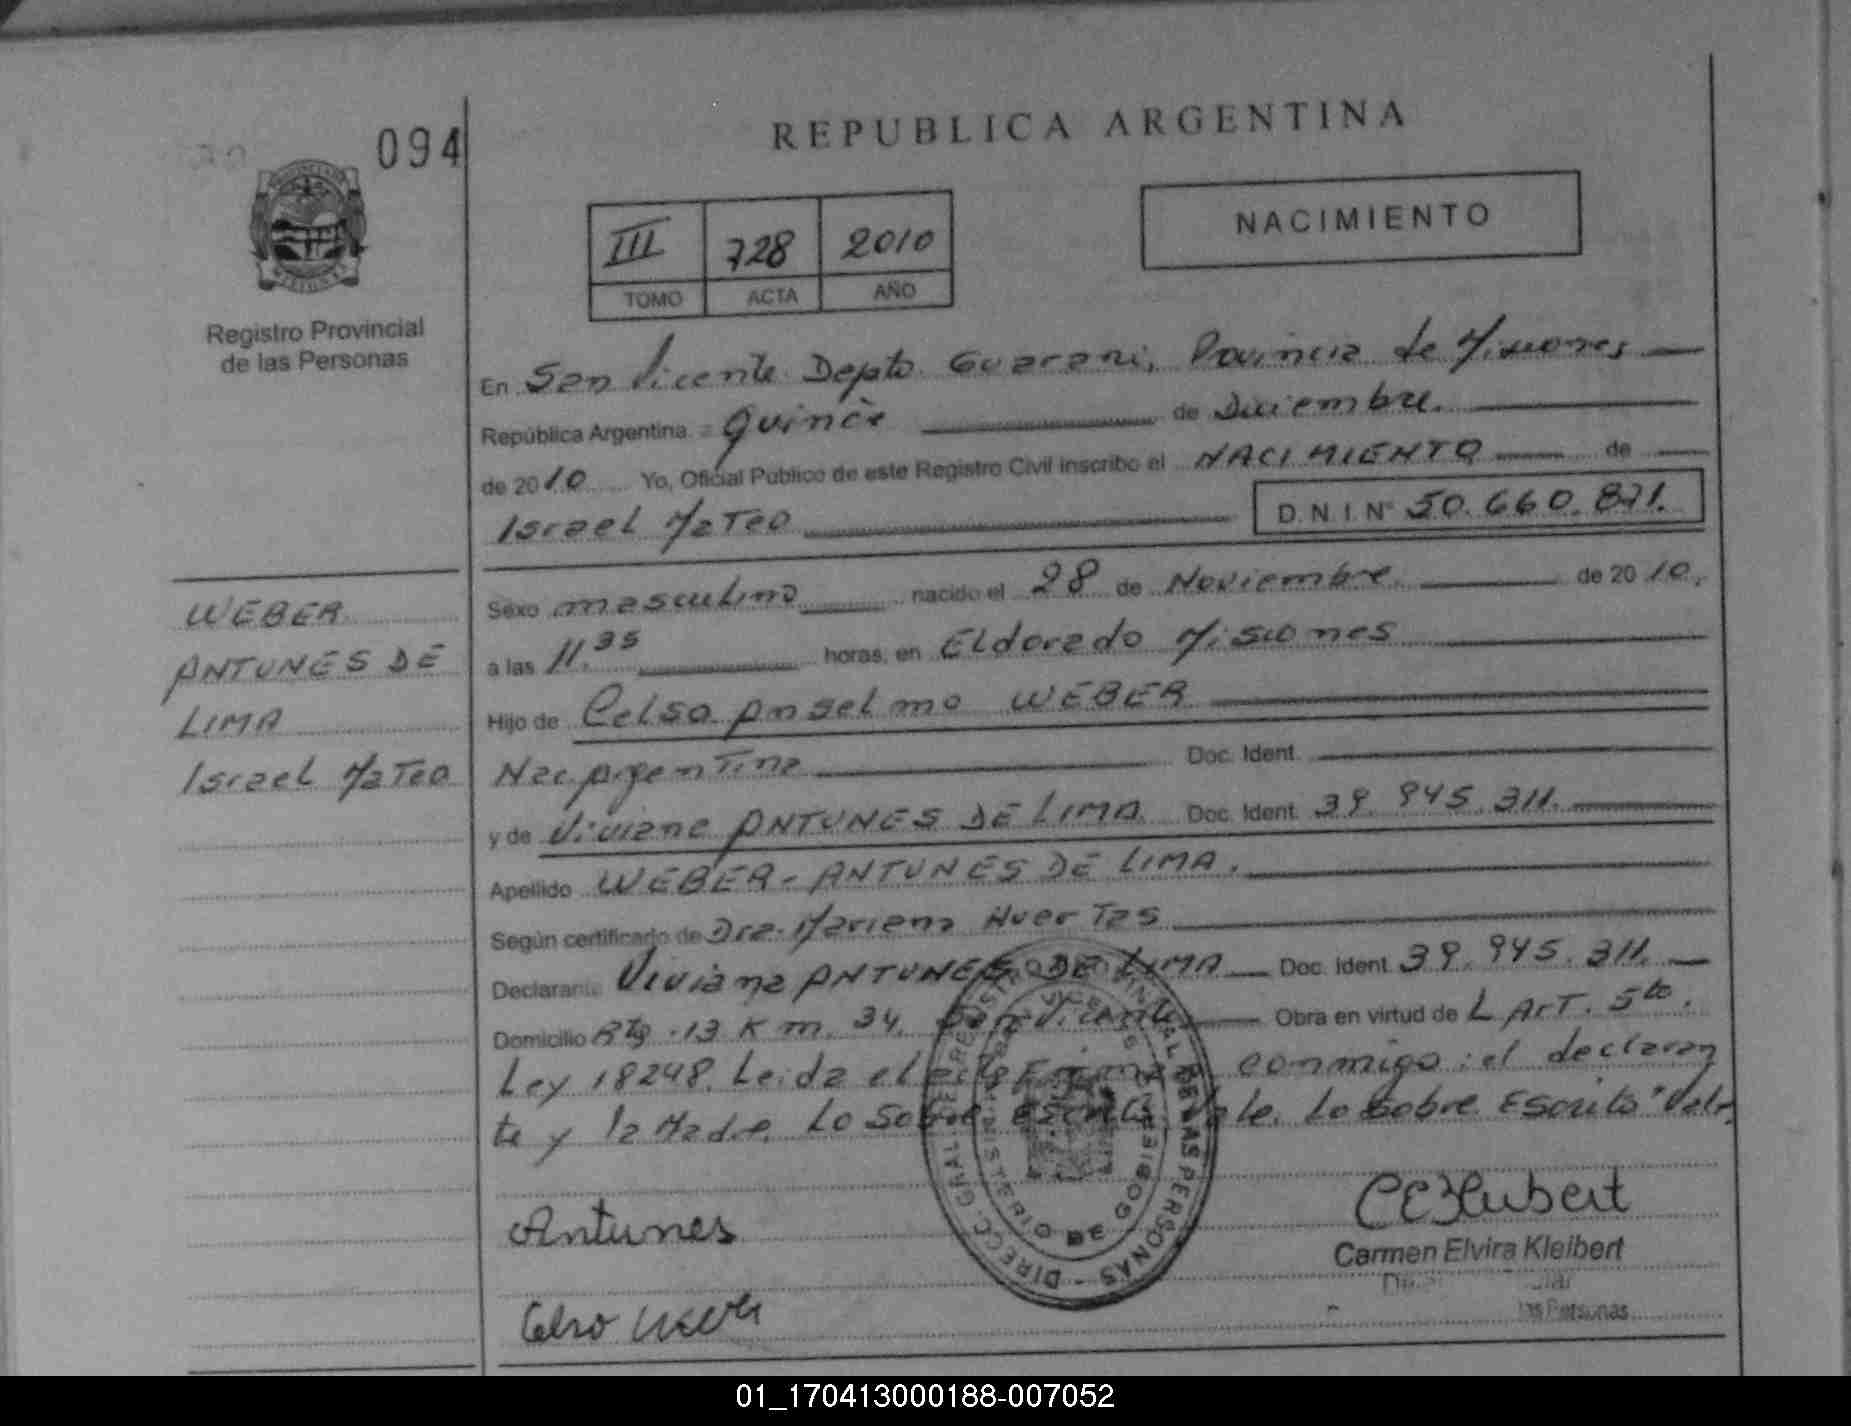 094
REPUBLICA ARGENTINA
NACIMIENTO
III 728 2010
TOMO ACTA AÑO
Registro Provincial
de las Personas
En San Vicente Depto Guarani, Provincia de Misiones
República Argentina. = Quince de Diciembre.
de 2010 Yo, Oficial Publico de este Registro Civil inscribo el NACIMIENTO de
Israel Mateo D. N. I. N° 50.660.871.
WEBER
ANTUNES DE
LIMA
Israel Mateo
Sexo masculino nacido el 28 de Noviembre de 2010.
a las 11.35 horas, en Eldorado Misiones
Hijo de Celso Anselmo WEBER
Nac. Argentina Doc. Ident.
y de Viviane ANTUNES DE LIMA Doc. Ident. 39.945.311.
Apellido WEBER - ANTUNES DE LIMA.
Según certificado de Dra. Mariana Huertas
Declarante Viviana ANTUNES DE LIMA Doc. Ident. 39.945.311.
Domicilio Rta. 13 Km. 34. San Vicente Obra en virtud de L Art. 5to.
Ley 18248. Leida el conmigo: el declaran
te y la Madre. Lo Sobre Vale. Lo sobre Escrito "Vale.
DIRECC. GRAL. DE REGISTRO PROVINCIAL DE LAS PERSONAS
MINISTERIO DE GOBIERNO
Antunes
CEKleibert
Carmen Elvira Kleibert
las Personas
Celso
01_170413000188-007052